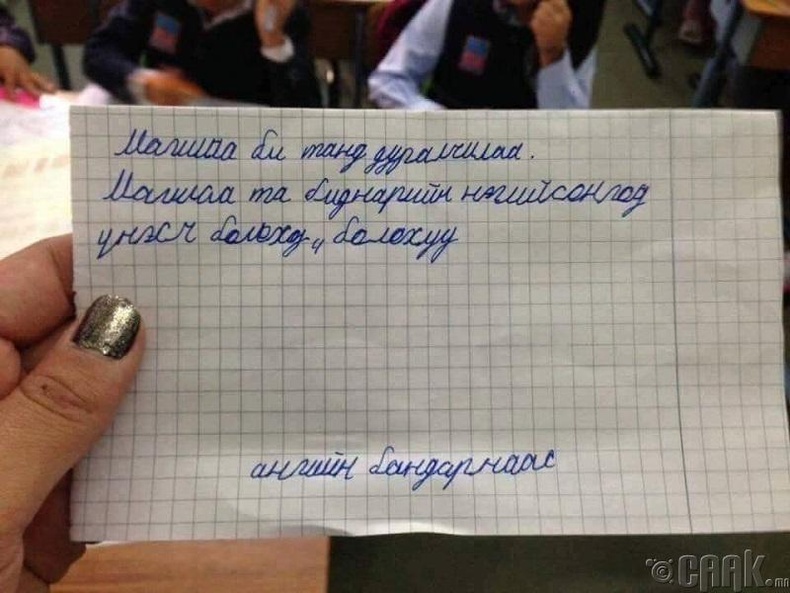 Магшаа би танд дуралчилаа.
Магшаа та биднарийн нэгийсонгод
үнэхч болоход ч болохуу
ангийн бандарнаас
caak.mn